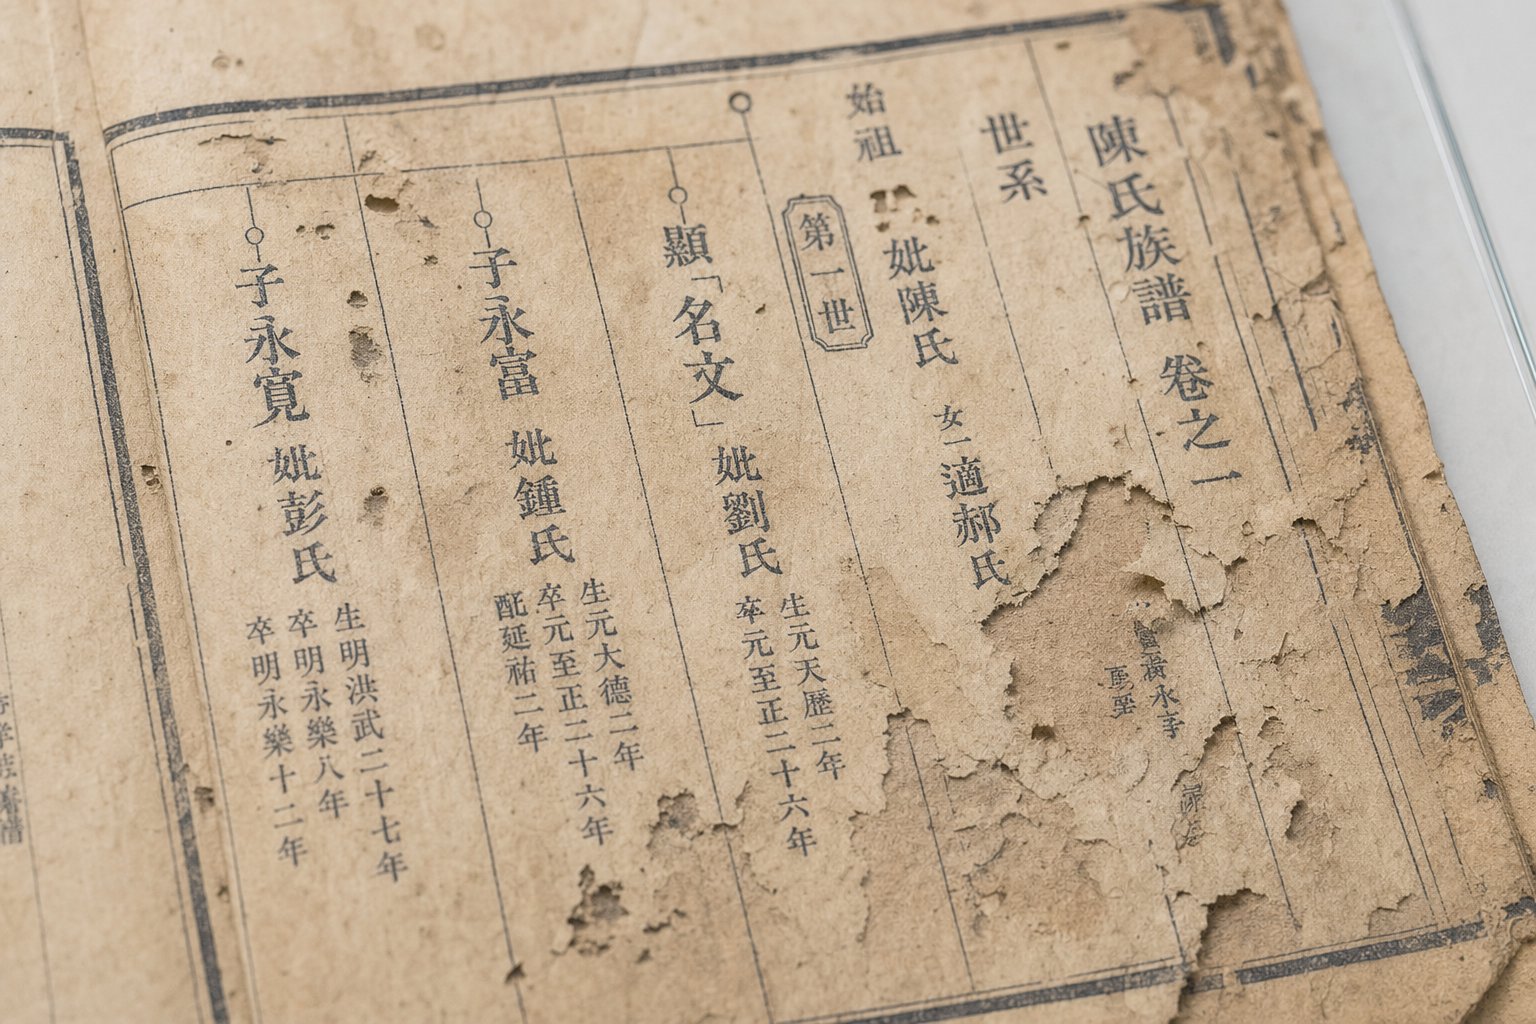 陳氏族譜 卷之一
世系
始祖 妣陳氏 女一適郝氏
第一世
顯「名文」妣劉氏
生元天歷二年
卒元至正二十六年
子永富 妣鍾氏
生元大德二年
卒元至正二十六年
配延祐二年
子永寬 妣彭氏
生明洪武二十七年
卒明永樂八年
卒明永樂十二年